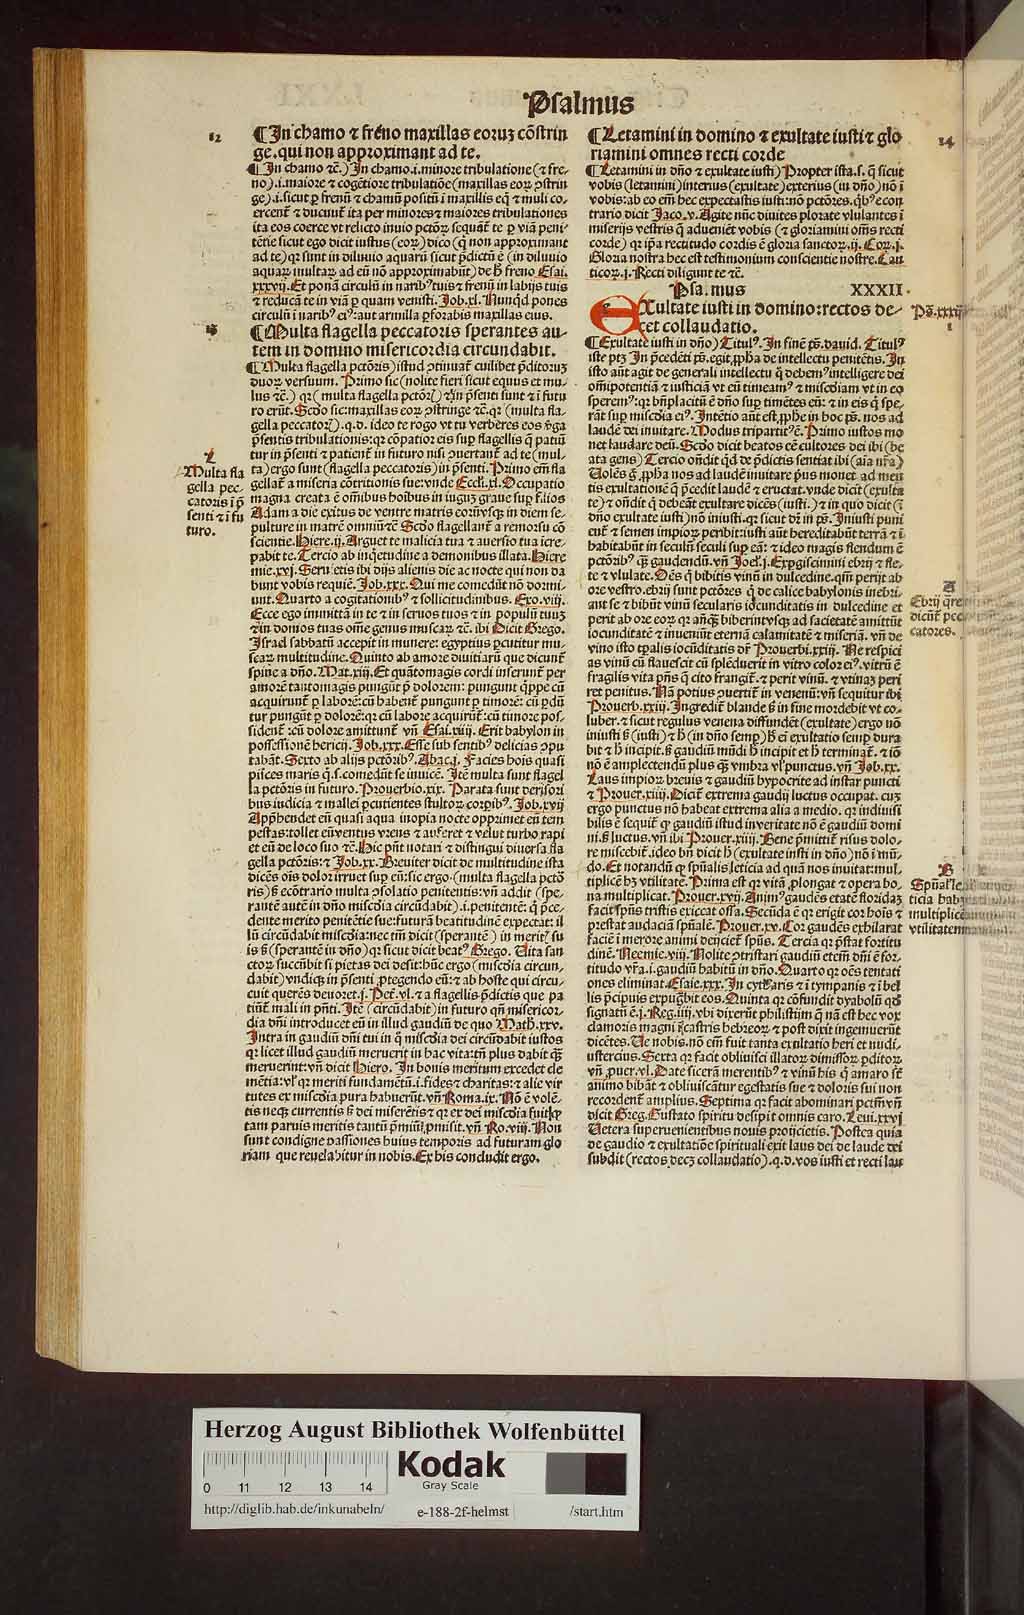 Psalmus
12
¶In chamo ⁊ freno maxillas eoruꝫ cōstrin
ge. qui non approximant ad te.
¶In chamo ⁊c̄.) In chamo .i. minore tribulatione (⁊ fre-
no) .i. maiore ⁊ cogētiore tribulatiōe (maxillas eoꝝ ꝯstrin
ge) .i. sicut ꝑ frenū ⁊ chamū positū ī maxillis eq̄ ⁊ muli co-
ercent᷑ ⁊ ducunt᷑ ita per minores ⁊ maiores tribulationes
ita eos coerce vt relicto inuio pctōꝝ sequāt᷑ te ꝑ viā peni-
tētie sicut ego dicit iustus (eoꝝ) dico (q̄ non approximant
ad te) qꝛ sunt in diluuio aquarū sicut p̄dictū ē (in diluuio
aquaꝝ multaꝝ ad eū nō approximabūt) de h̄ freno Esai.
xxxvij. Et ponā circulū in naribꝰ tuis ⁊ frenū in labijs tuis
⁊ reducā te in viā ꝑ quam venisti. Job .xl. Nunqd pones
circulū ī naribꝰ eiꝰ: aut armilla ꝑforabis maxillas eius.
13
¶Multa flagella peccatoris sperantes au-
tem in domino misericordia circundabit.
¶Multa flagella pctōris) istud ꝯtinuat᷑ cuilibet p̄ditoruꝫ
duoꝝ versuum. Primo sic (nolite fieri sicut equus et mu-
lus ⁊c̄.) qꝛ (multa flagella pctōꝝ) ⁊ ī p̄senti sunt ⁊ ī futu
ro erūt. Scdo sic: maxillas eoꝝ ꝯstringe ⁊c̄. qꝛ (multa fla-
gella peccatoꝝ) .q.d. ideo te rogo vt tu verberes eos v̓ga
p̄sentis tribulationis: qꝛ cōpatior eis suꝑ flagellis q̄ patiū
tur in p̄senti ⁊ patient᷑ in futuro nisi ꝯuertant᷑ ad te (mul-
ta) ergo sunt (flagella peccatoris) in p̄senti. Primo em̄ fla
gellant᷑ a miseria cōtritionis sue: vnde Eccli .xl. Occupatio
magna creata ē om̄ibus hoībus in iuguꝫ graue suꝑ filios
Adam a die exitus de ventre matris eoꝝ vsqꝫ in diem se-
pulture in matrē omniū ⁊c̄ Scdo flagellant᷑ a remorsu cō
scientie. Hiere .ij. Arguet te malicia tua ⁊ auersio tua icre-
pabit te. Tercio ab inq̓etudine a demonibus illata. Hiere
mie .xvj. Seruietis ibi dijs alienis die ac nocte qui non da
bunt vobis requiē. Job .xxx. Qui me comedūt nō dormi-
unt. Quarto a cogitationibꝰ ⁊ sollicitudinibus. Exo .viij.
Ecce ego immittā in te ⁊ in seruos tuos ⁊ in populū tuuꝫ
⁊ in domos tuas om̄e genus muscaꝝ ⁊c̄. ibi Dicit Grego.
Israel sabbatū accepit in munere: egyptius ꝑcutitur mu-
scaꝝ multitudine. Quinto ab amore diuitiarū que dicunt᷑
spine a dn̄o. Mat .xiij. Et quātomagis cordi inserunt᷑ per
amorē tantomagis pungūt ꝑ dolorem: pungunt q̄ppe cū
acquirunt᷑ ꝑ laborē: cū habent᷑ pungunt ꝑ timorē: cū ꝑdū
tur pungūt ꝑ dolorē: qꝛ cū labore acquirūt᷑: cū timore pos-
sident᷑: cū dolore amittunt᷑ vn̄ Esai .xiiij. Erit babylon in
possessionē hericij. Job .xxx. Esse sub sentibꝰ delicias ꝯpu
tabāt. Sexto ab alijs pctōribꝰ. Abac .j. Facies hoīs quasi
pisces maris q̄ .s. comedūt se inuicē. Itē multa sunt flagel
la pctōris in futuro. Prouerbio .xix. Parata sunt derisori
bus iudicia ⁊ mallei ꝑcutientes stultoꝝ corꝑibꝰ. Job .xvij
Apprēhendet eū quasi aqua inopia nocte opprimet eū tem
pestas: tollet eū ventus vrens ⁊ auferet ⁊ velut turbo rapi
et eū de loco suo ⁊c̄. Hic pn̄t notari ⁊ distingui diuersa fla
gella pctōris: ⁊ Job .xx. Breuiter dicit de multitudine ista
dicēs oīs dolor irruet suꝑ eū: sic ergo (multa flagella pctō
ris) s̄ ecōtrario multa ꝯsolatio penitentis: vn̄ addit (spe-
rantē autē in dn̄o miscdia circūdabit) .i. penitentē: q̄ p̄ce-
dente merito penitētie sue: futurā beatitudinē expectat: il
lū circūdabit miscdia: nec tm̄ dicit (sperantē) in meritꝭ su
is s̄ (sperantē in dn̄o) qꝛ sicut dicit beatꝰ Grego. Uita san
ctoꝝ succūbit si pietas dei desit: hūc ergo (miscdia circun-
dabit) vndiqꝫ in p̄senti ꝓtegendo eū: ⁊ ab hoste qui circu-
cuit querēs deuoret .j. Pet .vl. ⁊ a flagellis p̄dictis que pa
tiūt᷑ mali in pn̄ti. Itē (circūdabit) in futuro qn̄ misericor-
dia dn̄i introducet eū in illud gaudiū de quo Math .xxv.
Intra in gaudiū dn̄i tui in q̄ miscdia dei circūdabit iustos
qꝛ licet illud gaudiū meruerit in hac vita: tn̄ plus dabit q̄ꝫ
meruerint: vn̄ dicit Hiero. In bonis meritum excedet cle
mētia: vl̓ qꝛ meriti fundamētū .i. fides ⁊ charitas: ⁊ alie vir
tutes ex miscdia pura habuerūt. vn̄ Roma .ix. Nō ē volē-
tis neqꝫ currentis s̄ dei miserētis ⁊ qꝛ ex dei miscdia fuit ꝙ
tam paruis meritis tantū p̄miū ꝓmisit. vn̄ Ro .viij. Non
sunt condigne passiones huius temporis ad futuram glo
riam que reuelabitur in nobis. Ex his concludit ergo.
Multa fla
gella pec-
catoris ī p̄
senti ⁊ ī fu
turo.
14
¶Letamini in domino ⁊ exultate iusti ⁊ glo
riamini omnes recti corde
¶Letamini in dn̄o ⁊ exultate iusti) Propter ista .s. q̄ sicut
vobis (letamini) interius (exultate) exterius (in dn̄o) nō ī
vobis: ab eo em̄ hec expectastis iusti: nō pctōres. q̓bꝰ econ
trario dicit Jaco .v. Agite nūc diuites plorate vlulantes ī
miserijs vestris q̄ adueniēt vobis (⁊ gloriamini om̄s recti
corde) qꝛ ip̄a rectitudo cordis ē gloria sanctoꝝ .ij. Coꝝ .j.
Gloria nostra hec est testimonium conscientie nostre. Can
ticoꝝ .j. Recti diligunt te ⁊c̄.
Psa.mus XXXII.
Exultate iusti in domino: rectos de-
cet collaudatio.
¶Exultate iusti in dn̄o) Titulꝰ. In finē ps̄. dauid. Titulꝰ
iste ptꝫ In p̄cedēti ps̄. egit ꝓpha de intellectu penitētis. In
isto aūt agit de generali intellectu q̄ debemꝰ intelligere dei
om̄ipotentiā ⁊ iusticiā vt eū timeamꝰ ⁊ miscdiam vt in eo
speremꝰ: qꝛ bn̄placitū ē dn̄o suꝑ timētes eū: ⁊ in eis q̄ spe-
rāt suꝑ miscdia eiꝰ. Intētio aūt est ꝓphe in hoc ps̄. nos ad
laudē dei inuitare. Modus tripartitꝰ ē. Primo iustos mo
net laudare deū. Scdo dicit beatos eē cultores dei ibi (be
ata gens) Tercio on̄dit qd̓ de p̄dictis sentiat ibi (aīa nr̄a)
Uolēs g̊ ꝓpha nos ad laudē inuitare p̓us monet ad men
tis exultationē q̄ p̄cedit laudē ⁊ eructat. vnde dicit (exulta
te) ⁊ on̄dit q̄ debeāt exultare dicēs (iusti.) ⁊ in quo dicit (ī
dn̄o exultate iusti) nō iniusti. qꝛ sicut dr̄ in ps̄. Iniusti puni
ent᷑ ⁊ semen impioꝝ peribit: iusti aūt hereditabūt terrā ⁊ ī
habitabūt in seculū seculi suꝑ eā: ⁊ ideo magis flendum ē
pctōribꝰ q̄ꝫ gaudendū. vn̄ Joel .j. Expgiscimini ebrij ⁊ fle-
te ⁊ vlulate. Oēs q̄ bibitis vinū in dulcedine. qm̄ perijt ab
ore vestro. ebrij sunt pctōres q̄ de calice babylonis inebri-
ant se ⁊ bibūt vinū secularis iocunditatis in dulcedine et
perit ab ore eoꝝ qꝛ añq̄ꝫ biberint vsqꝫ ad sacietatē amittūt
iocunditatē ⁊ inueniūt eternā calamitatē ⁊ miseriā. vn̄ de
vino isto tꝑalis iocūditatis dr̄ Prouerbi .xxiij. Ne respici
as vinū cū flauescit cū splēduerit in vitro color eiꝰ. vitrū ē
fragilis vita pn̄s q̄ cito frangit᷑. ⁊ perit vinū. ⁊ vtinaꝫ peri
ret penitus. Nā potius ꝯuertit᷑ in venenū: vn̄ sequitur ibi
Prouerb .xxiij. Ingredit᷑ blande s̄ in fine mordebit vt co-
luber. ⁊ sicut regulus venena diffundēt (exultate) ergo nō
iniusti s̄ (iusti) ⁊ h̄ (in dn̄o semp) h̄ ei exultatio semꝑ dura
bit ⁊ h̄ incipit. s̄ gaudiū mūdi h̄ incipit et h̄ terminat᷑. ⁊ iō
nō ē amplectendū plus q̄ꝫ vmbra vl̓ punctus. vn̄ Job .xx.
Laus impioꝝ breuis ⁊ gaudiū hypocrite ad instar puncti
⁊ Prouer .xiiij. Dicit᷑ extrema gaudij luctus occupat. cuꝫ
ergo punctus nō habeat extrema alia a medio. qꝛ indiuisi
bilis ē sequit᷑ ꝙ gaudiū istud inueritate nō ē gaudiū domi
ni. s̄ luctus. vn̄ ibi Prouer .xiiij. Bene p̄mittit᷑ risus dolo-
re miscebit᷑. ideo bn̄ dicit h̄ (exultate iusti in dn̄o) nō ī mū-
do. Et notandū ꝙ sp̄ualis leticia ad quā nos inuitat: mul-
tiplicē hꝫ vtilitatē. Prima est qꝛ vitā ꝓlongat ⁊ opera bo-
na multiplicat. Prouer .xvij. Animꝰ gaudēs etatē floridaꝫ
facit sp̄us tristis exiccat ossa. Secūda ē qꝛ erigit cor hoīs ⁊
prestat audaciā sp̄ualē. Prouer .xv. Cor gaudēs exhilarat
faciē ī merore animi deijcietur sp̄us. Tercia qꝛ p̄stat fortitu
dinē. Neemie .viij. Nolite ꝯtristari gaudiū etem̄ dn̄i ē for-
titudo vr̄a .i. gaudiū habitū in dn̄o. Quarto qꝛ oēs tentati
ones eliminat. Esaie .xxx. In cytharis ⁊ ī tympanis ⁊ ī bel
lis p̄cipuis expugbit eos. Quinta qꝛ cōfundit dyabolū qd̓
signatū ē .j. Reg .iiij. vbi dixerūt philistijm q̄ nā est hec vox
clamoris magni ī castris hebreoꝝ ⁊ post dixit ingemuerūt
dicētes. Ue nobis. nō em̄ fuit tanta exultatio heri et nudi-
ustercius. Sexta qꝛ facit obliuisci illatoꝝ dimissoꝝ ꝑditoꝝ
vn̄ ꝓuer .vl. Date sicerā merentibꝰ ⁊ vinū his q̄ amaro st̄
animo bibāt ⁊ obliuiscātur egestatis sue ⁊ doloris sui non
recordent᷑ amplius. Septima qꝛ facit abominari pctm̄ vn̄
dicit Greg. Gustato spiritu desipit omnis caro. Leui .xxvj
Uetera superuenientibus nouis proijcietis. Postea quia
de gaudio ⁊ exultatiōe spirituali exit laus dei de laude dei
subdit (rectos decꝫ collaudatio) .q.d. vos iusti et recti lau
Ps̄. xxxij
1
A
Ebrij q̄re
dicūt᷑ pec
catores.
B
Sp̄ualꝭ le
ticia hab
multiplicē
vtilitatem
Herzog August Bibliothek Wolfenbüttel
0 11 12 13 14
Kodak
Gray Scale
http://diglib.hab.de/inkunabeln/ e-188-2f-helmst /start.htm